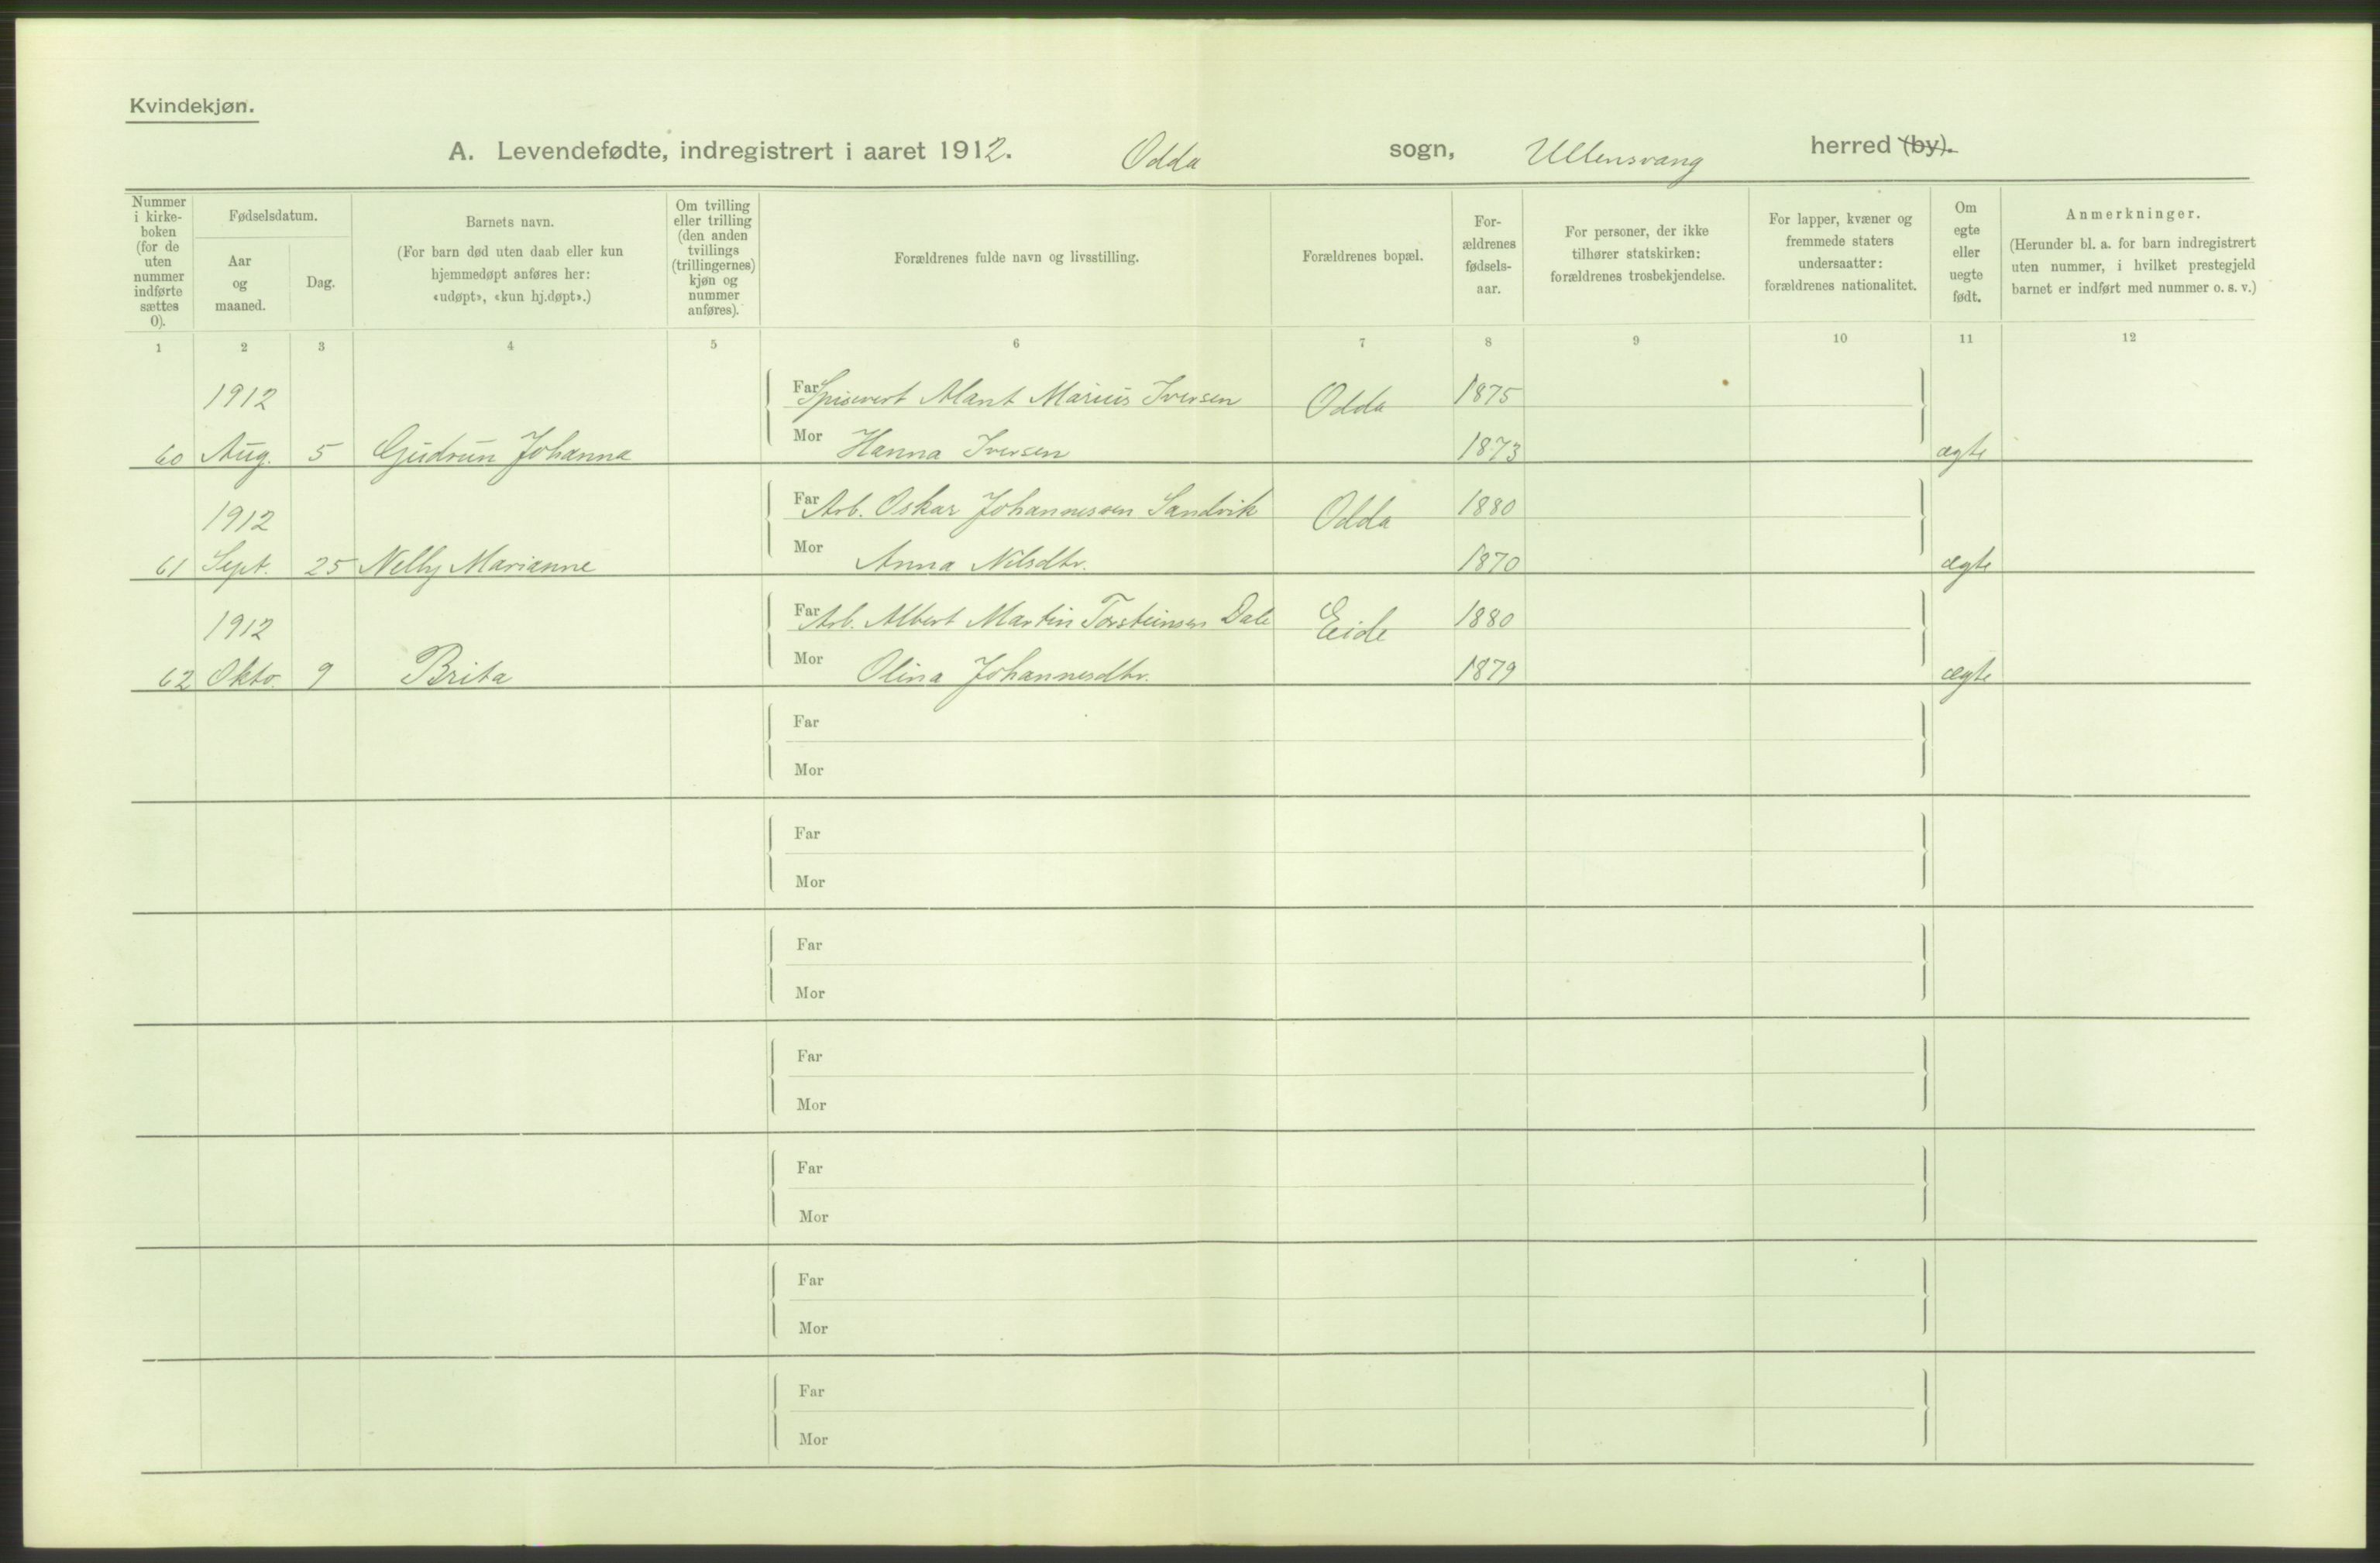 Kvindekjøn.
A. Levendefødte, indregistrert i aaret 1912. Odda sogn, Ullensvang herred (by).
Nummer i kirke- boken (for de uten nummer indførte sættes 0).
Fødselsdatum.
Aar og maaned.
Dag.
Barnets navn.
(For barn død uten daab eller kun hjemmedøpt anføres her: «udøpt», «kun hj.døpt».)
Om tvilling eller trilling (den anden tvillings (trillingernes) kjøn og nummer anføres).
Forældrenes fulde navn og livsstilling.
Forældrenes bopæl.
For- ældrenes fødsels- aar.
For personer, der ikke tilhører statskirken: forældrenes trosbekjendelse.
For lapper, kvæner og fremmede staters undersaatter: forældrenes nationalitet.
Om egte eller uegte født.
Anmerkninger.
(Herunder bl. a. for barn indregistrert uten nummer, i hvilket prestegjeld barnet er indført med nummer o. s. v.)
1 2 3 4 5 6 7 8 9 10 11 12
1912 Far Marius Iversen Odda 1875
60 Aug. 5 Gudrun Johanna Mor Hanna Iversen 1873 ægte
1912 Far Arb. Oskar Johannessen Sandvik Odda 1880
61 Sept. 25 Nelly Marianne Mor Anna Nilsdtr. 1870 ægte
1912 Far Arb. Albert Martin Torsteinsen Dale Eide 1880
62 Okto. 9 Brita Mor Olina Johannesdtr. 1879 ægte
Far
Mor
Far
Mor
Far
Mor
Far
Mor
Far
Mor
Far
Mor
Far
Mor